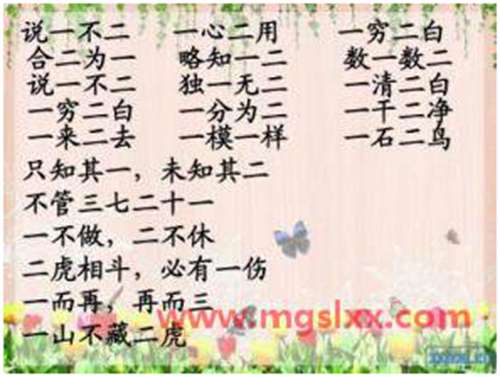 说一不二 一心二用 一穷二白
合二为一 略知一二 数一数二
说一不二 独一无二 一清二白
一穷二白 一分为二 一干二净
一来二去 一模一样 一石二鸟
只知其一，未知其二
不管三七二十一
一不做，二不休
二虎相斗，必有一伤
一而再，再而三
www.mgslxx.com
一山不藏二虎